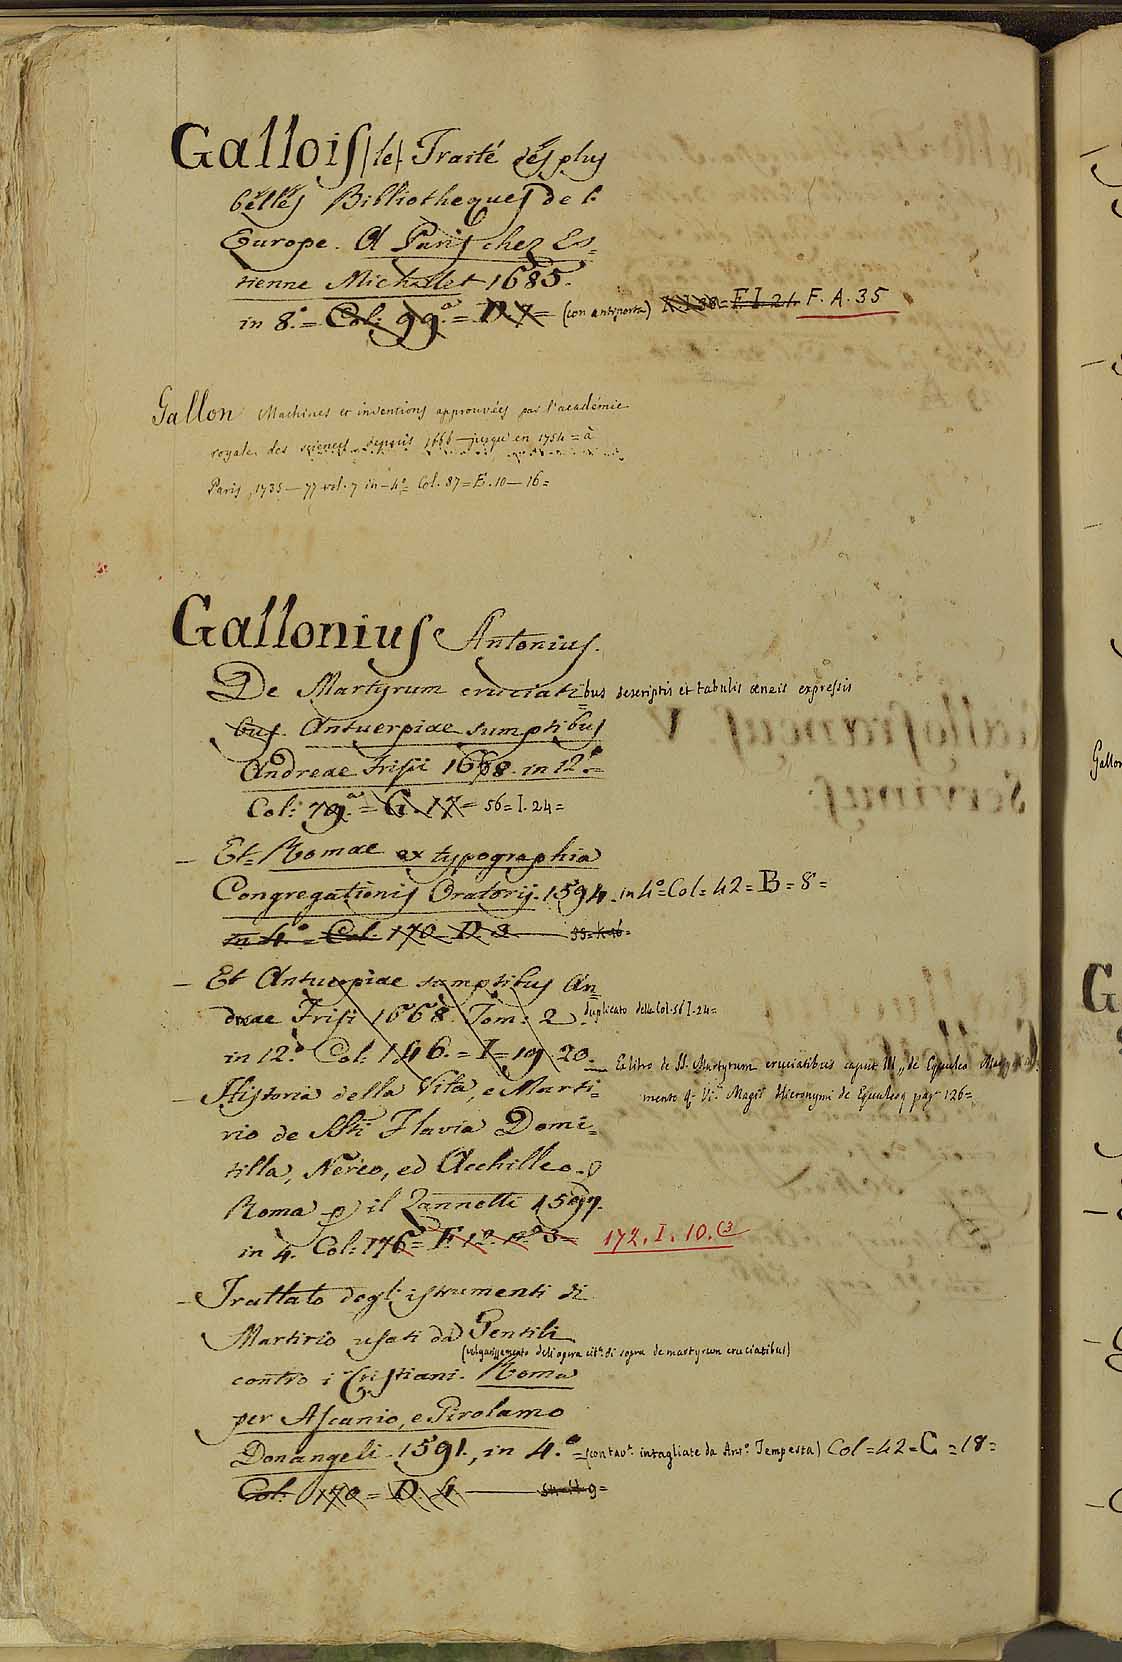 Gallois (le) Traité des plus
belles Bibliotheques de l'
Europe. A Paris chez Es=
tienne Michalet 1685.
in 8.° = Col: 99.a = D 7 = (con antiporta) F. I. 21. F. A. 35
Gallon Machines et inventions approuvées par l'académie
royale des sciences depuis 1666 — jusqu'en 1754 = à
Paris, 1735 — 77 vol. 7 in - 4.° Col. 87 = E. 10 — 16 =
Gallonius Antonius.
De Martyrum cruciatibus descriptis et tabulis æneis expressis
bus. Antuerpiae sumptibus
Andreae Frisii 1668. in 12.° =
Col: 79.a = G. 17 = 56 = I. 24 =
— Et Romae ex typographia
Congregationis Oratorij. 1594. in 4.° = Col = 42 = B = 8 =
in 4.° = Col. 170 D. 3
— Et Antuerpiae sumptibus An=
dreae Frisi 1668. Tom: 2. duplicato della Col. 56 I. 24 =
in 12.° Col: 146. = I = 19. 20.
— Ex libro de SS. Martyrum cruciatibus caput III de Equuleo
pag. 126 =
— Historia della Vita, e Marti=
rio de SSti Flavia Domi=
tilla, Nereo, ed Acchilleo.
Roma p il Zannetti 1597.
in 4. Col: 176 = F. 172. I. 10. C3
— Trattato degl' istrumenti di
Martirio usati da Gentili
(volgarizzamento dell' opera cit.a di sopra de martyrum cruciatibus)
contro i Cristiani. Roma
per Ascanio, e Girolamo
Donangeli 1591., in 4.° = (con tav.e intagliate da Ant.° Tempesta) Col = 42 = C = 18 =
Col: 170 = D. 4 9 =
Gallon
G